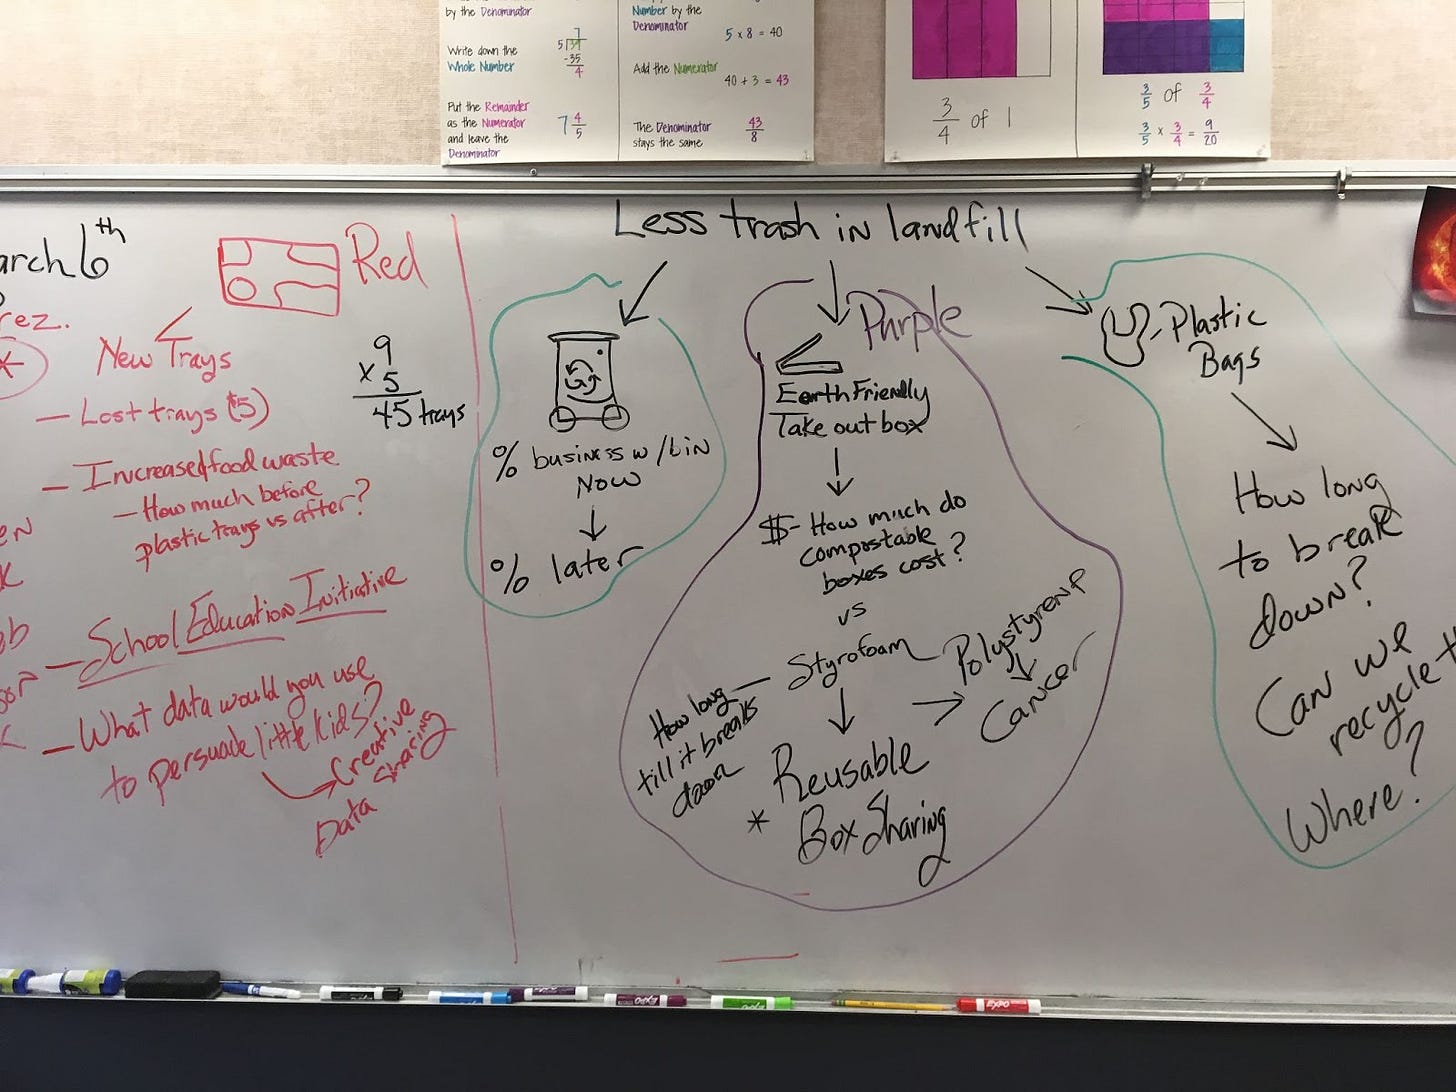 by the Denominator
Write down the
Whole Number
7
5
-35
4
Put the Remainder
as the Numerator
and leave the
Denominator
7 4/5
Number by the
Denominator
5 x 8 = 40
Add the Numerator
40 + 3 = 43
The Denominator
stays the same
43/8
3/4 of 1
3/5 of 3/4
3/5 x 3/4 = 9/20
arch 6th
rez.
*
Red
New Trays
— Lost trays ($5)
9
x 5
45 trays
— Increased food waste
— How much before
plastic trays vs after?
— School Education Initiative
— What data would you use
to persuade little kids?
Creative
Data Sharing
Less trash in landfill
% business w/bin
Now
% later
Purple
Earth Friendly
Take out box
$- How much do
compostable
boxes cost?
vs
Styrofoam — Polystyrene
Cancer
How long
till it breaks
down
Reusable
* Box Sharing
Plastic
Bags
How long
to break
down?
Can we
recycle
Where?
EXPO
EXPO